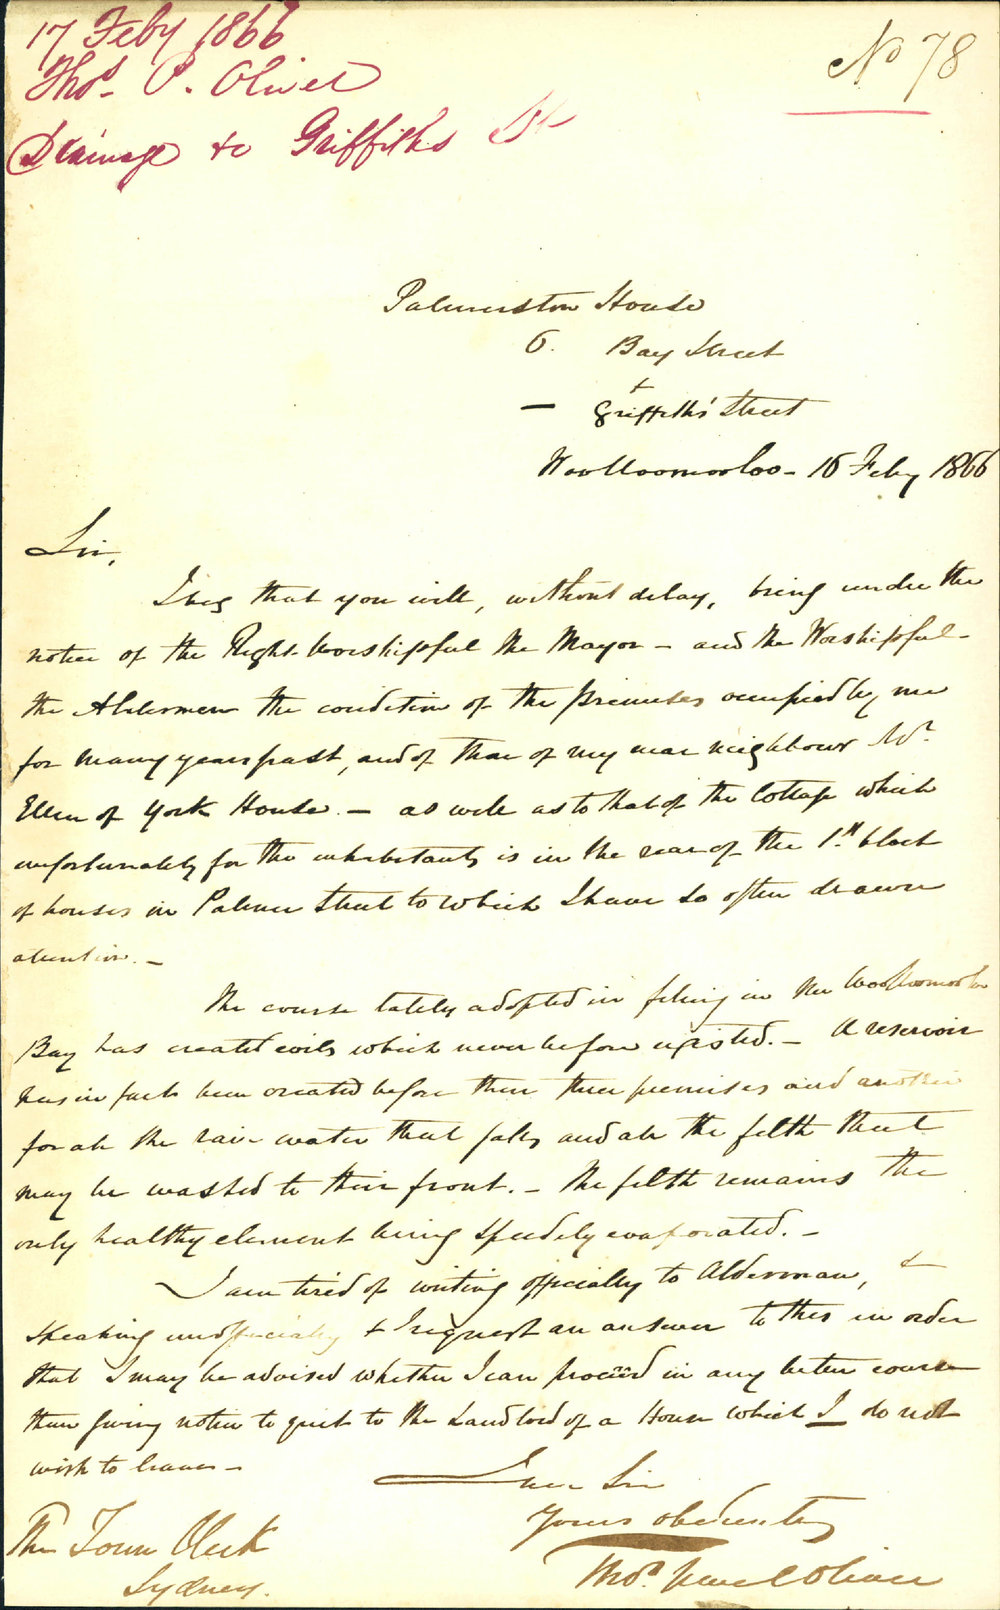 17 Feby 1866
No 78
Thos. P. Oliver
Drainage &c Griffiths St
Palmerston House
6. Bay Street
&
— Griffiths' Street
Woolloomooloo - 16 Feby 1866
Sir,
I beg that you will, without delay, bring under the
notice of the Right Worshipful the Mayor - and the Worshipful -
the Aldermen the condition of the premises occupied by me
for many years past, and of that of my near neighbour Mr.
Ellen of York House. - as well as to that of the Cottage which
unfortunately for the inhabitants is in the rear of the 1st block
of houses in Palmer Street to which I have so often drawn
attention. -
The course lately adopted in filling in the Woolloomooloo
Bay has created evils which never before existed. - A reservoir
has in fact been created before these three premises and another
for all the rain water that falls, and all the filth that
may be washed to their front. - The filth remains the
only healthy element being speedily evaporated. -
I am tired of writing officially to Alderman, &
speaking unofficially & I request an answer to this in order
that I may be advised whether I can proceed in any better course
than giving notice to quit to the Landlord of a House which I do not
wish to leave -
I am Sir
Yours obediently
Thos. Oliver
The Town Clerk
Sydney.